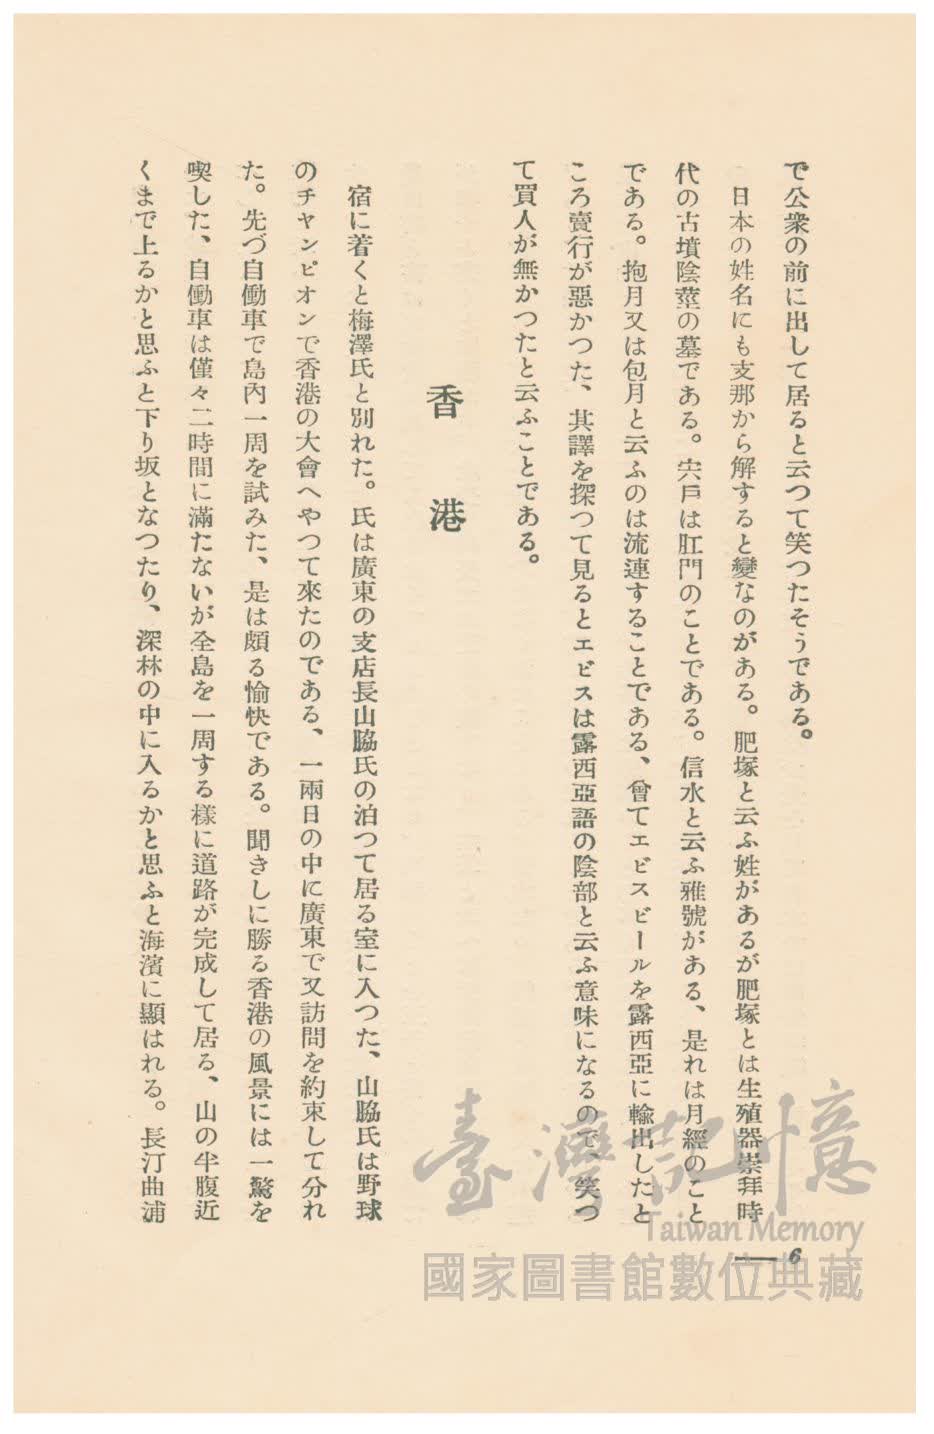 で公衆の前に出して居ると云つて笑つたそうである。
日本の姓名にも支那から解すると變なのがある。肥塚と云ふ姓があるが肥塚とは生殖器崇拜時
代の古墳陰莖の墓である。宍戸は肛門のことである。信水と云ふ雅號がある、是れは月經のこと
である。抱月又は包月と云ふのは流連することである、曾てエビスビールを露西亞に輸出したと
ころ賣行が惡かつた、其譯を探つて見るとエビスは露西亞語の陰部と云ふ意味になるので、笑つ
て買人が無かつたと云ふことである。
香港
宿に着くと梅澤氏と別れた。氏は廣東の支店長山脇氏の泊つて居る室に入つた、山脇氏は野球
のチヤンピオンで香港の大會へやつて來たのである、一兩日の中に廣東で又訪問を約束して分れ
た。先づ自働車で島內一周を試みた、是は頗る愉快である。聞きしに勝る香港の風景には一驚を
喫した、自働車は僅々二時間に滿たないが全島を一周する樣に道路が完成して居る、山の半腹近
くまで上るかと思ふと下り坂となつたり、深林の中に入るかと思ふと海濱に顯はれる。長汀曲浦
6
臺灣記憶
Taiwan Memory
國家圖書館數位典藏